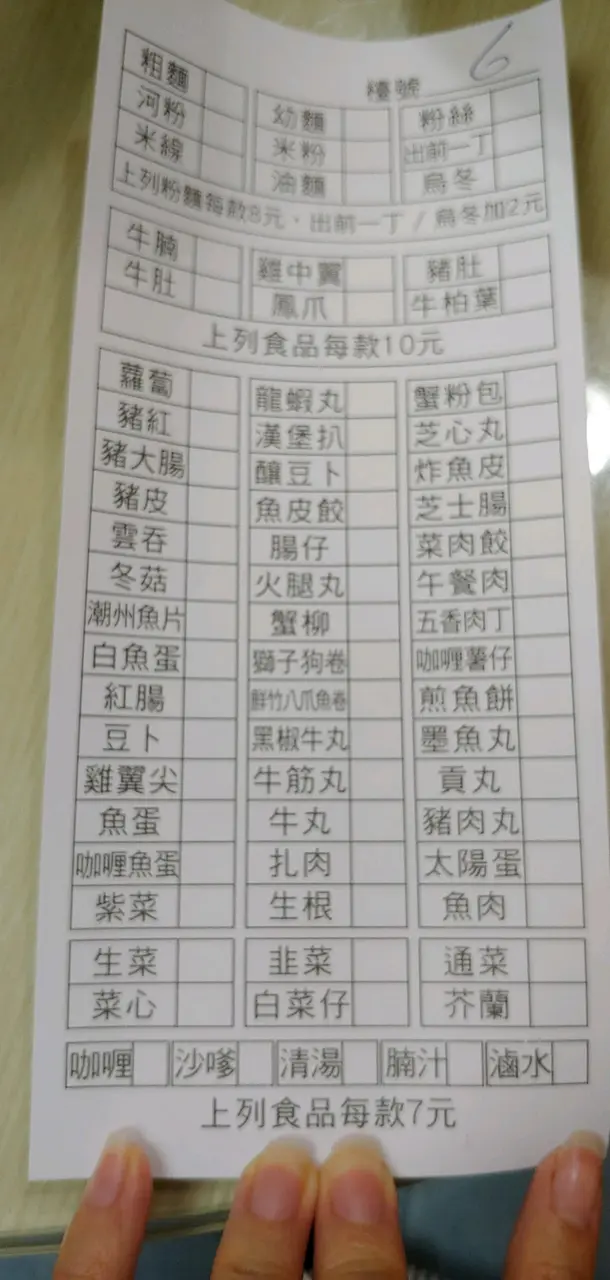 檯號 6
粗麵 幼麵 粉絲
河粉 米粉 出前一丁
米線 油麵 烏冬
上列粉麵每款8元，出前一丁/烏冬加2元
牛腩 雞中翼 豬肚
牛肚 鳳爪 牛柏葉
上列食品每款10元
蘿蔔 龍蝦丸 蟹粉包
豬紅 漢堡扒 芝心丸
豬大腸 釀豆卜 炸魚皮
豬皮 魚皮餃 芝士腸
雲吞 腸仔 菜肉餃
冬菇 火腿丸 午餐肉
潮州魚片 蟹柳 五香肉丁
白魚蛋 獅子狗卷 咖喱薯仔
紅腸 鮮竹八爪魚卷 煎魚餅
豆卜 黑椒牛丸 墨魚丸
雞翼尖 牛筋丸 貢丸
魚蛋 牛丸 豬肉丸
咖喱魚蛋 扎肉 太陽蛋
紫菜 生根 魚肉
生菜 韭菜 通菜
菜心 白菜仔 芥蘭
咖喱 沙嗲 清湯 腩汁 滷水
上列食品每款7元